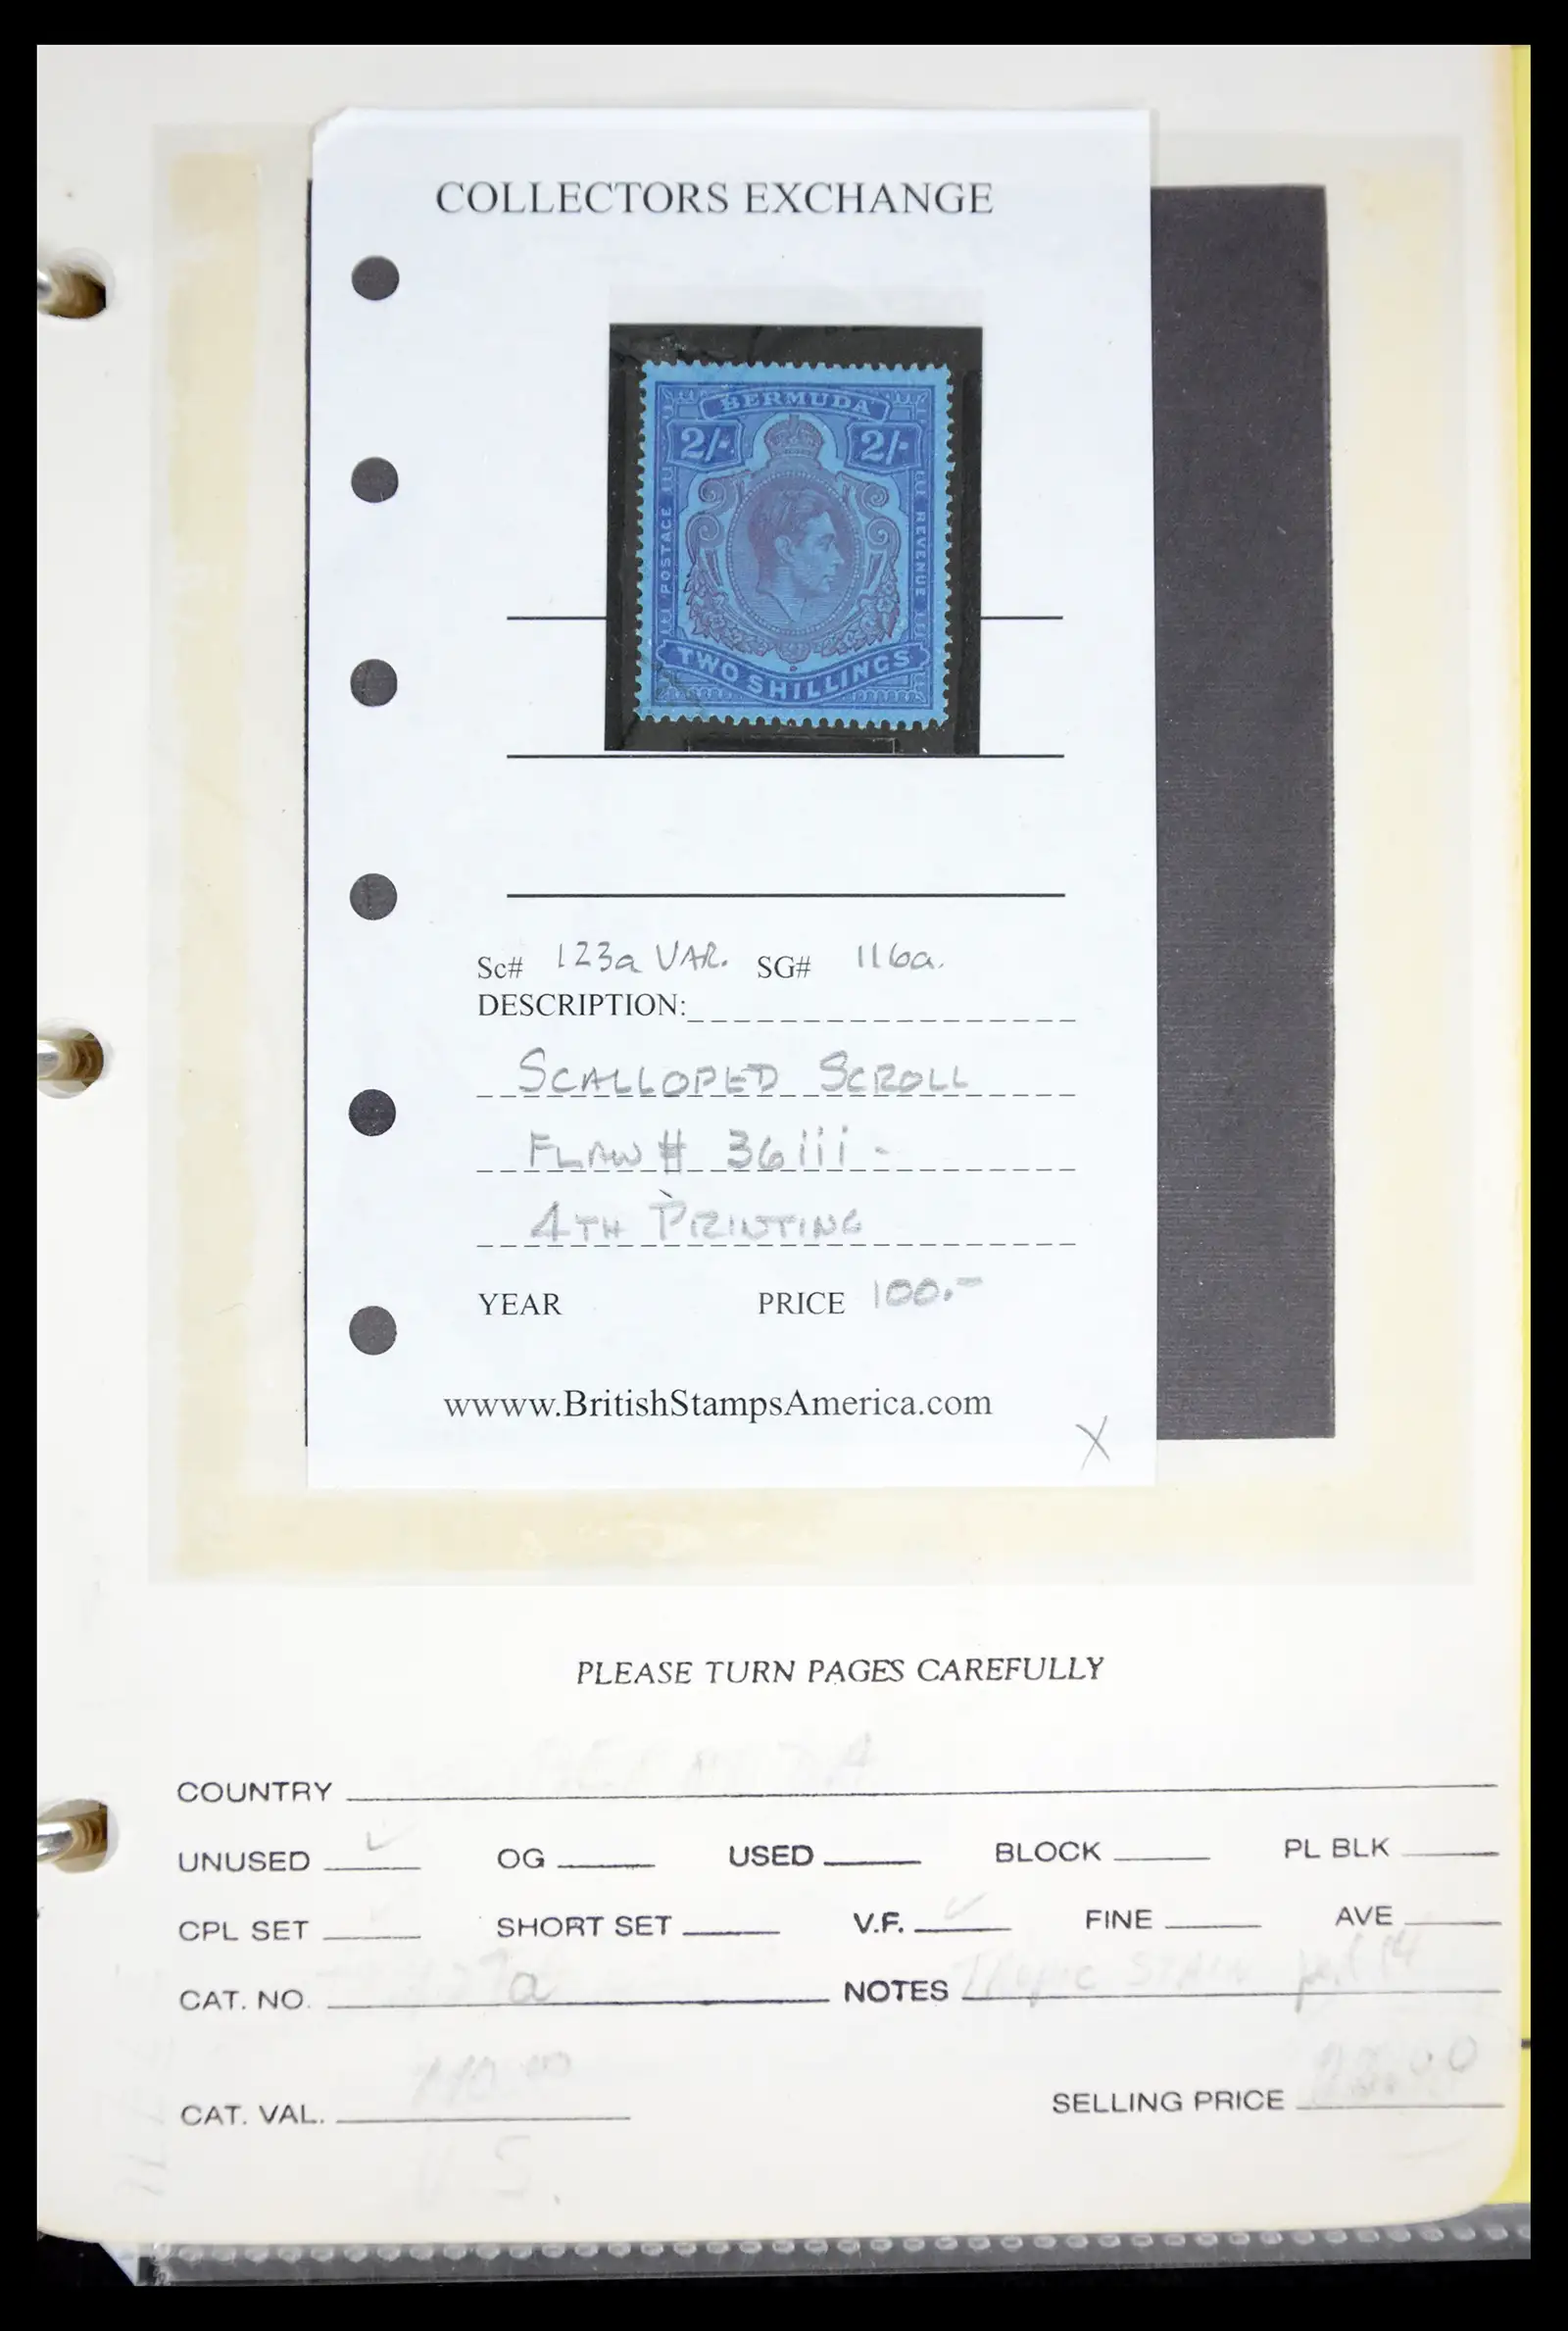 COLLECTORS EXCHANGE
BERMUDA
2/- 2/-
POSTACE
REVENUE
TWO SHILLINGS
Sc# 123a VAR. SG# 116a.
DESCRIPTION:
SCALLOPED SCROLL
FLAW # 36iii -
4TH PRINTING
YEAR PRICE 100.-
wwww.BritishStampsAmerica.com
X
PLEASE TURN PAGES CAREFULLY
COUNTRY
UNUSED ✓ OG USED BLOCK PL BLK
CPL SET SHORT SET V.F. ✓ FINE AVE
CAT. NO. a NOTES Tropic STAIN
CAT. VAL. SELLING PRICE